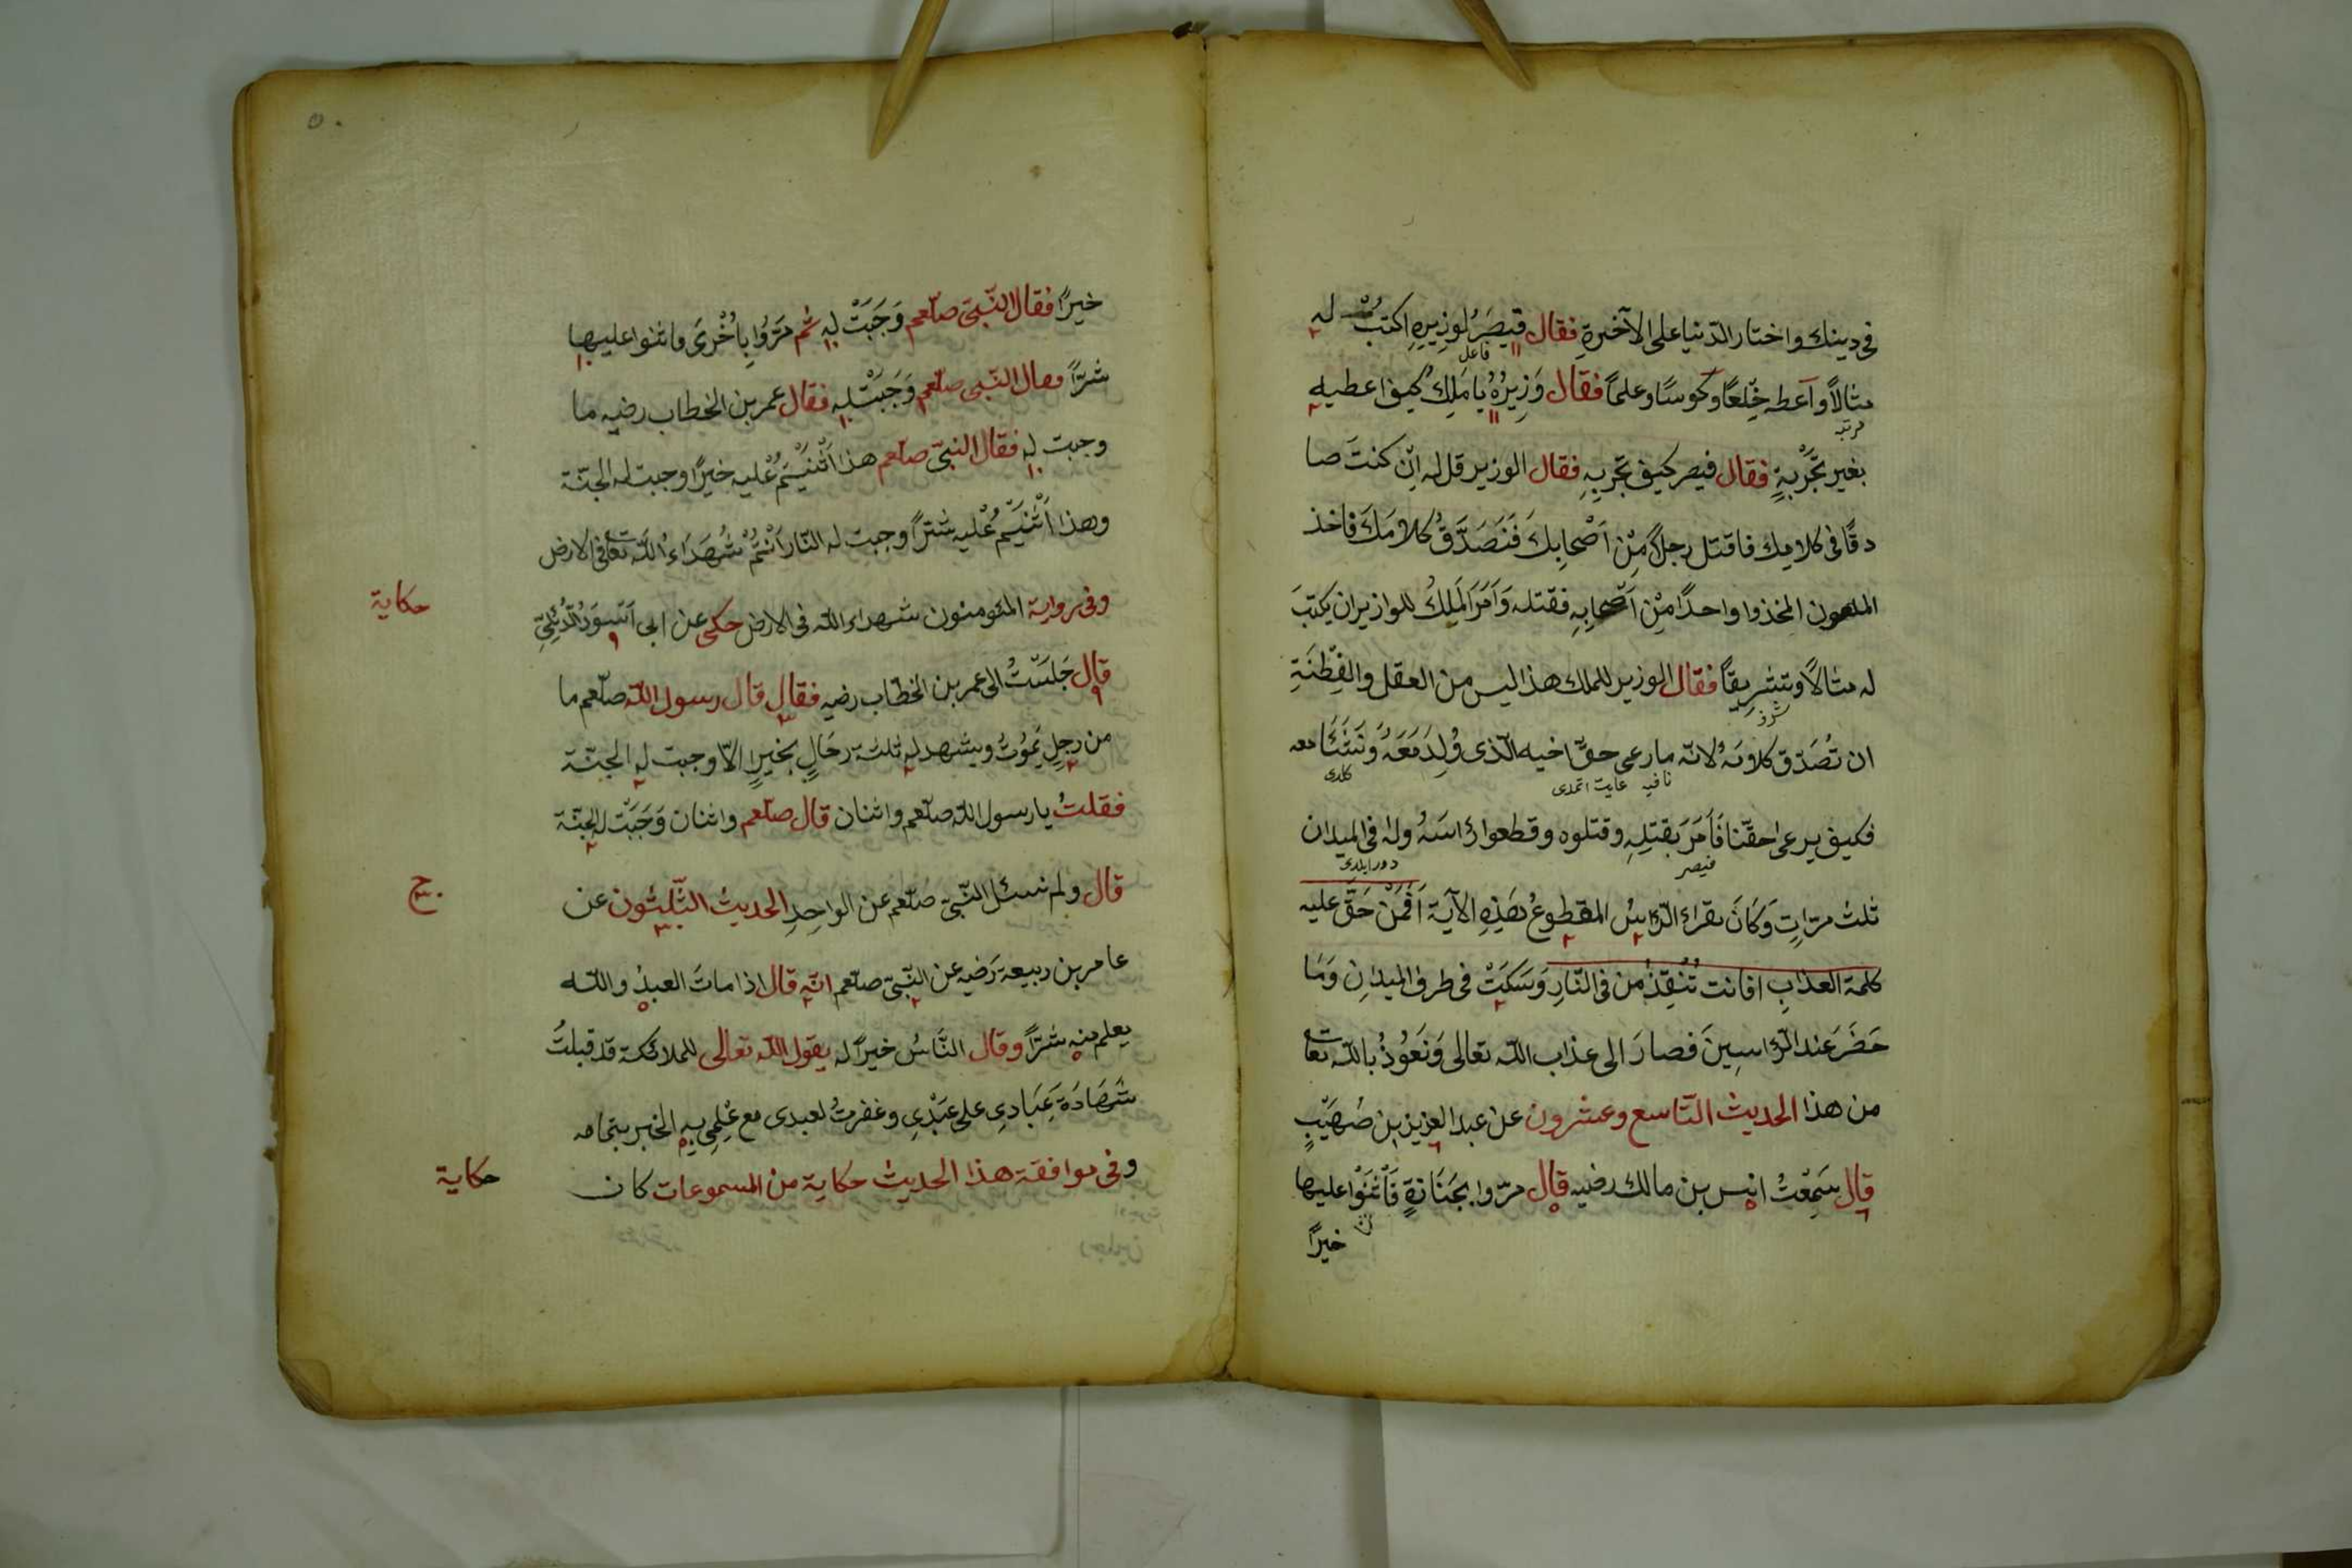 فى دينك واختار الدّنيا على الآخيرةِ فقال قيصَرُ لوزِيرِهِ اكتبْ له
فاعل
مثالاً وآعطه خِلَعًا وكوسًا وعلماً فقال وَزِيرُهُ يا مَلِكُ كيف اعطيه
مرتبه
بغير تَجْرُبةٍ فقال قيصر كيف تجرِبِهِ فقال الوزير قل له اِنْ كنتَ صا
دقًا فى كلامِك فاقتل رجلاً مِنْ اَصْحابِكَ فَنَصَدَّقُ كلامَكَ فاخذ
الملعون المخذوا واحدًا مِنْ اَصْحابِهِ فقتله وَاَمَرَ المَلِكُ للوازيران يكتبَ
له مثالاً وتشريقًا فقال الوزير للملك هذا ليس من العقل والفِطْنَةِ
شرف
ان تُصَدّق كلامَهُ لانّه مارعى حقّ اخيه الّذى وُلِدَ مَعَهُ وَنَشَأَ معه
نافيه عايت اتمدى كلدى
فكيف يرعى حقّنا فَاَمَرَ بقتلِهِ وقتلوه وقطعوا رأسَهُ وله فى الميدان
قيصر دورايلدى
ثلث مرّاتٍ وَكَانَ يقراء الرّأسُ المقطوعُ بهَذِهِ الآية اَفَمَنْ حَقَّ عليه
كلمة العذابِ افانت تُنْقِذُ من فى النّارِ وَسَكَتْ فى طرف الميدانِ وَمَا
حَضَرَ عند الرّاسِينَ فصارَ الى عذاب اللّه تعالى وَنَعُوذُ باللّه تعا
من هذا الحديث التّاسع وعشرون عن عبد العزيز بن صُهَيْبٍ
قال سَمِعْتُ انس بن مالك رضيه قال مرّوا بجَنَازةٍ فَاَثْنَوْا عليها
خيرًا
٥٠
خيرًا فقال النّبىّ صلّعم وَجَبَتْ له ثم مَرّوا بِاُخْرَى فاثنوا عليها
شرّاً فقال النّبى صلّعم وَجَبَتْ له فقال عمر بن الخطاب رضيه ما
وجبت له فقال النبىّ صلّعم هذا اَثْنَيْتُمْ عليه خيرًا وجبت له الجنّة
وهذا اَثْنَيْتُمْ عليه شرّاً وجبت له النّار اَنْتُمْ شُهَدَاءُ اللّه تعا فى الارض
حكاية
وفى رواية المئومنون شهداء اللّه فى الارض حكى عن ابى اَسْوَدُ الدُّئِلِىّ
قال جَلَسْتُ الى عمر بن الخطّاب رضيه فقال قال رسول اللّه صلّعم ما
من رجلٍ يَمُوتُ ويشهد له ثلثة رجَالٍ بخيرٍ الاّ وجبت له الجنّة
فقلتُ يا رسول اللّه صلّعم واثنان قال صلّعم واثنان وَجَبَتْ له الجنّة
قال ولم نسئل النّبىّ صلّعم عن الواحِدِ الحديث الثّلثون عن
عامر بن ربيعة رَضيه عن النّبىّ صلّعم انّه قال اذا ماتَ العبدُ واللّه
يعلم منه شرّاً وقال النّاسُ خيرًا له يقول اللّه تعالى للملائكة قد قبلتُ
شَهَادَةَ عِبَادِى على عَبْدِى وغفرتُ لعبدى مع عْلِمى به الخبر بتمامه
حكاية
وفى موافقة هذا الحديث حكاية من المسموعات كان